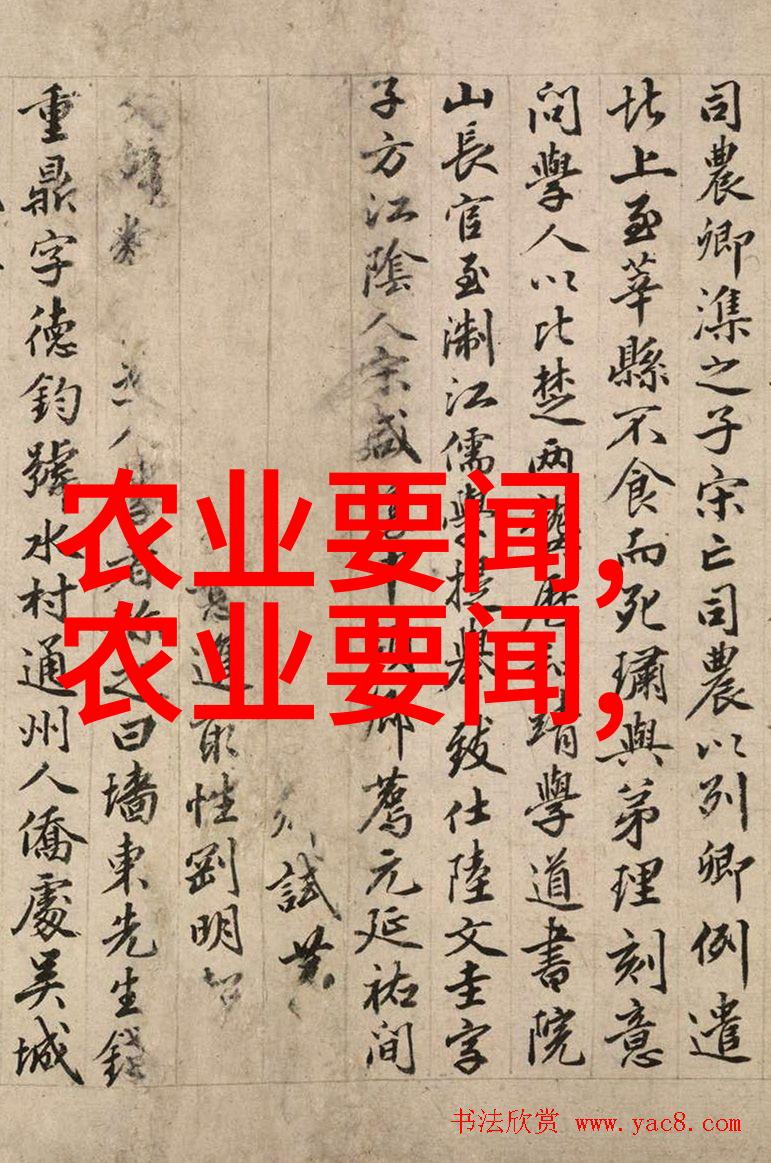 司農卿潗之子宋亡司農以列卿例遣
北上至莘縣不食而死璛與弟理刻意
問學人以比楚兩龔歷靖學道書院
山長官至淛江儒學提舉致仕陸文圭字
子方江陰人宋咸中鄉薦元延祐間
試
進取性剛明
人者稱之曰墻東先生錢
重鼎字德鈞號水村通州人僑處吳城
农业要闻,
农业要闻,
书法欣赏 www.yac8.com